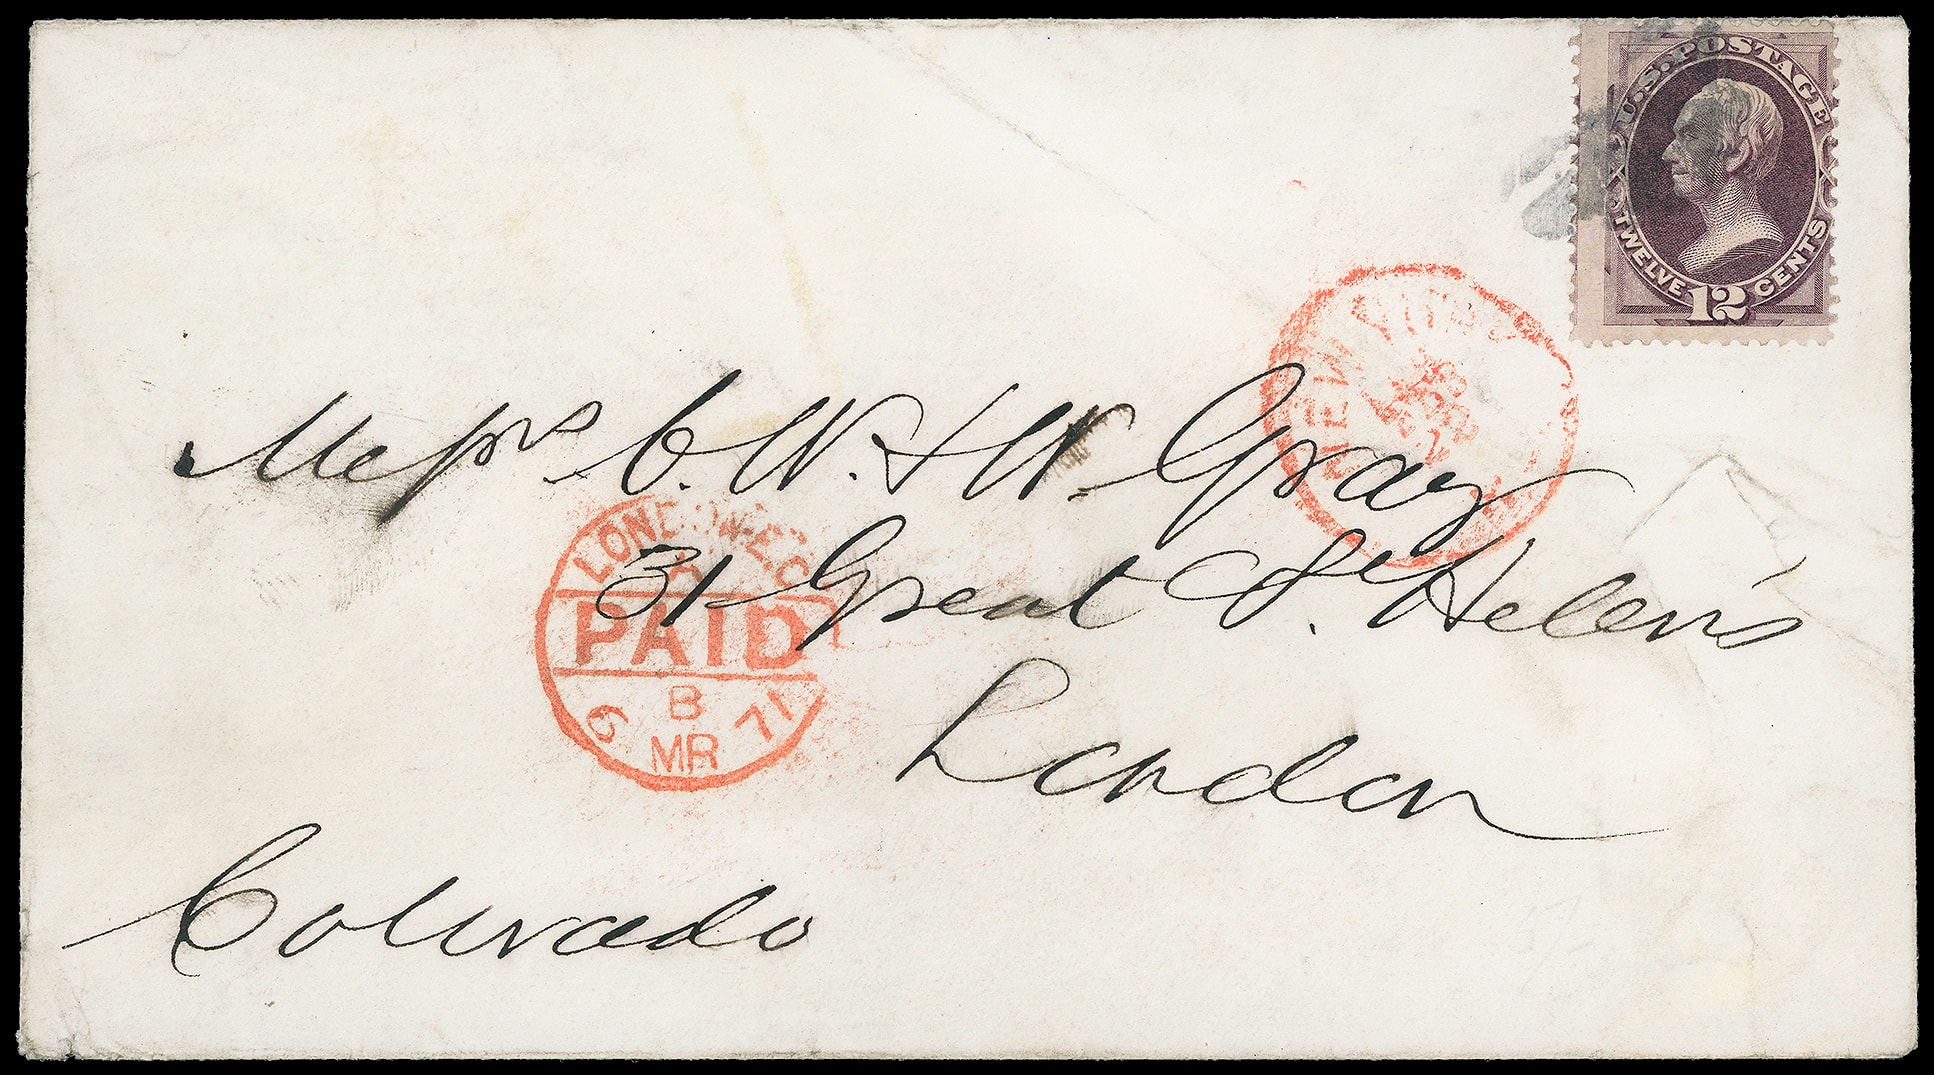 U.S. POSTAGE
TWELVE 12 CENTS
NEW
Messrs C. W. & W. Gray
31 Great St. Helen's
London
LONDON-E.C
PAID
B
6 MR 71
Colorado